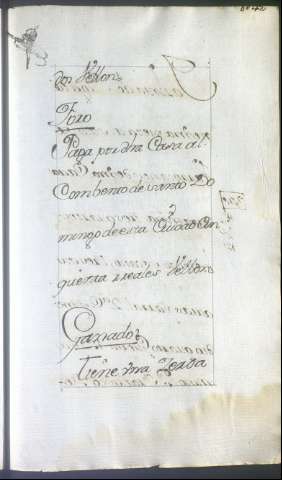 dos Vellon
Foro
Paga por dha Casa al
Combento de Santo Do
mingo de esta Ciudad Cin
quenta rreales Vellon
Ganado
Tiene Una Zerda